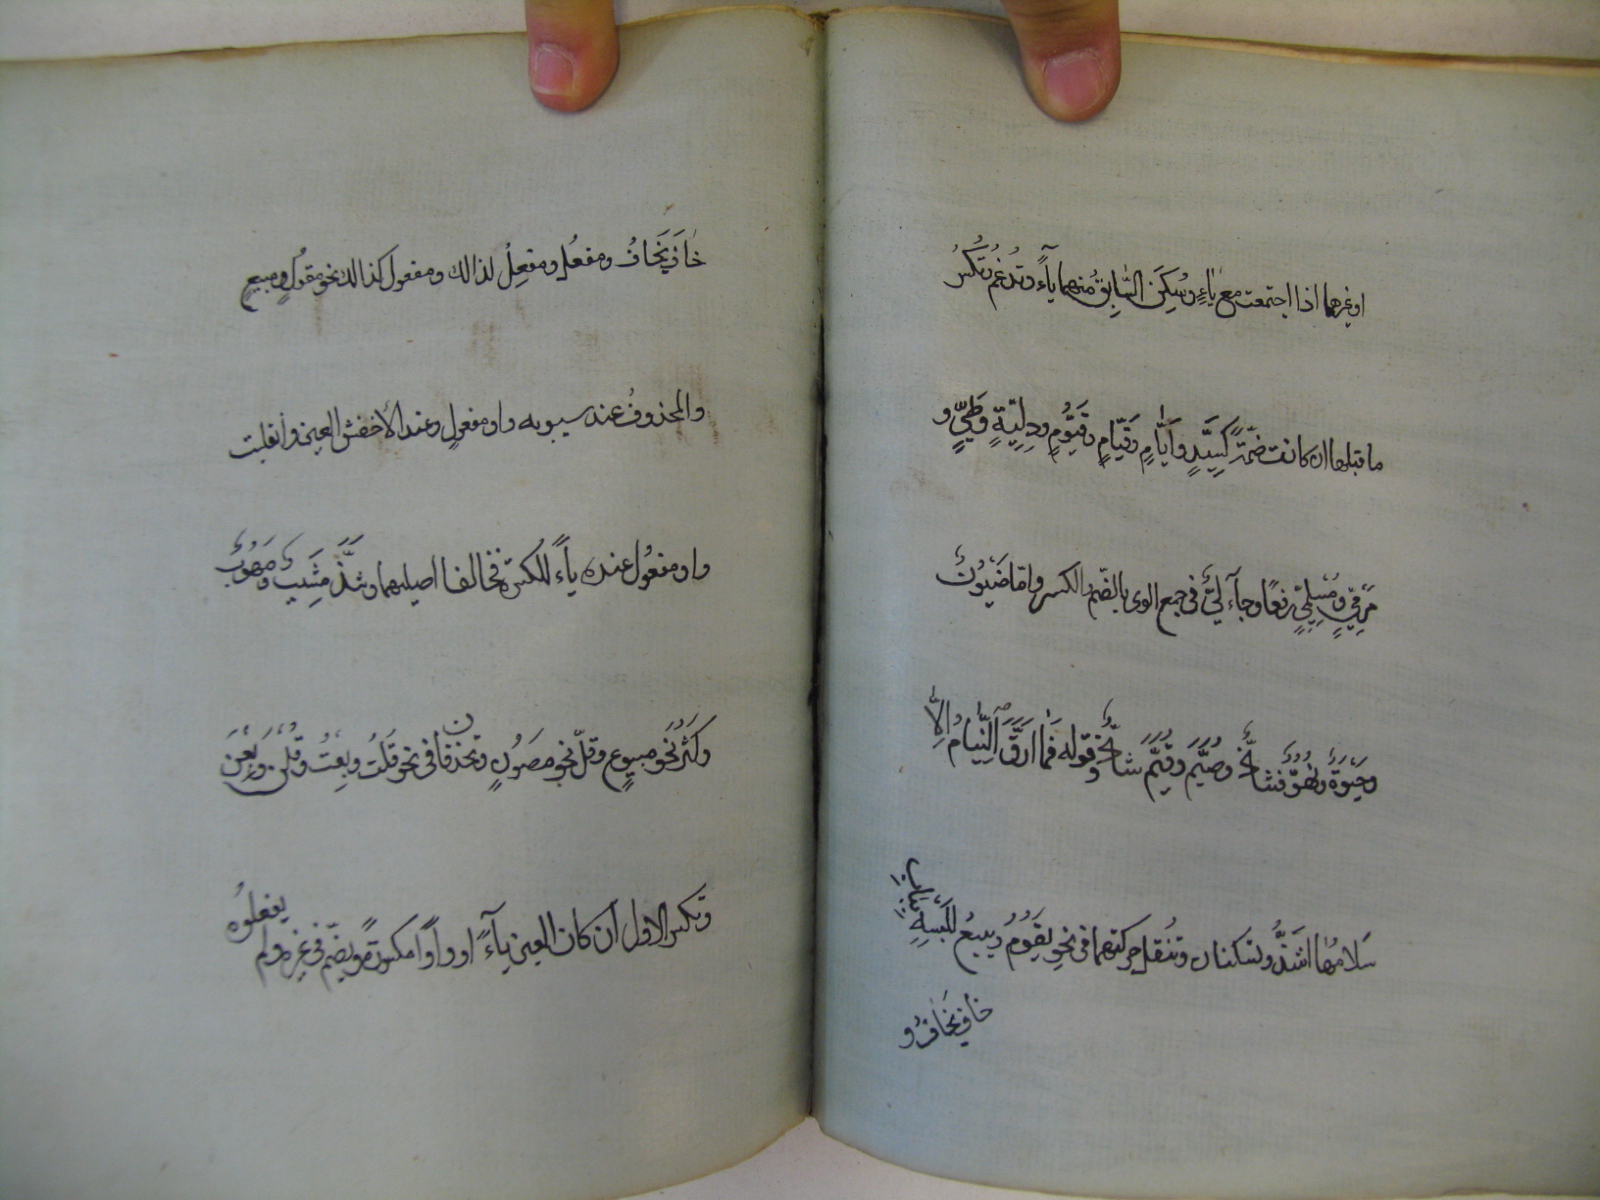 او غيرهما اذا اجتمعت مع يَاءٍ وسُكِنَ السَّابِقُ مِنهما يآءً وتُدْغَمُ وتُكْسَرُ
ما قبلها ان كانت ضَمَّةً كَسَيِّدٍ وأَيَّامٍ ودَيَّارٍ وقَيَّامٍ وقَيُّومٍ ودُلَيَّةٍ وطَيٍّ و
مَرْمِيٍّ ومُسْلِمِيَّ رفعًا وجآء لُيٌّ فى جمع الوى بالضّم والكسر واما ضَيْوَنٌ
وحَيْوَةُ ونَهُوٌّ فشاذٌّ وصُيَّمٌ وقُيَّمٌ شاذٌّ وقوله فَمَا ارَّقَ النُّيَّامَ اِلَّا
سَلامُها اشَذُّ وتسكنان وتُنْقل حركتهما فى نحو يَقُومُ ويبيعُ للَبْسِهِ بِبَابِ
خافَ يَخَافُ و
خَافَ يَخَافُ ومفعُل ومفعِلُ لذالك ومفعول كذالك نحو مقولٌ ومبيعٍ
والمحذوفُ عند سيبويه واو مفعولٍ وعند الأخفش العين وانقلبت
واو مفعُول عنده يآءً للكسرة فخالفا اصليهما وشَذَّ مَشِيبٌ ومَهُوبٌ
وكثُرَ نَحْو مبيوعٍ وقلّ نحو مصوُونٍ وتحذفان فى نحو قلْتُ وبِعتُ وقُلْنَ وبِعْنَ
وتكسر الاول ان كان العين يآءً او واوًا مكسورةً ويضمّ فى غيره ولم يفعلوُه